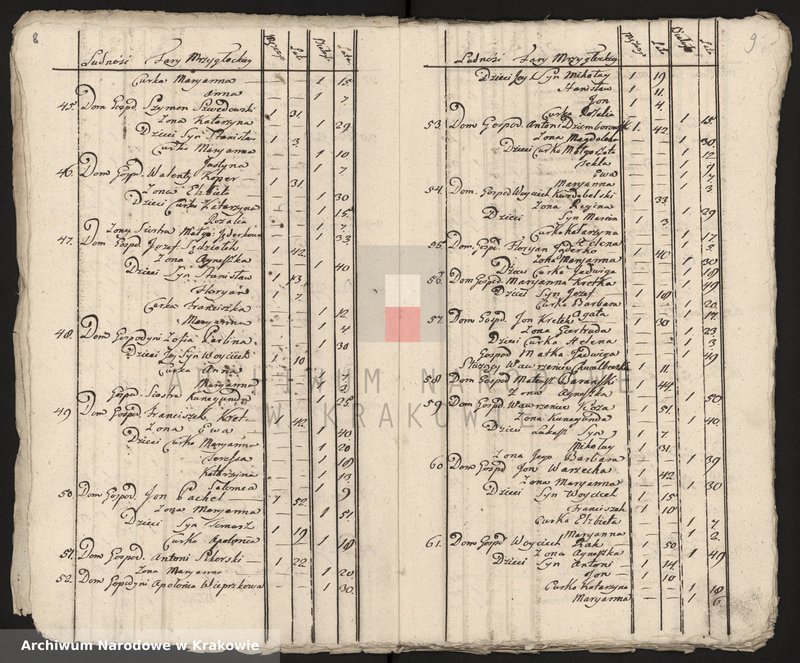 8
Ludność Fary Mrzygłockiey
Curka Maryanna 1 15
Anna 1 7
45. Dom Gospd Szymon Szwedowski 1 31
Zona Katarzyna 1 29
Dzieci Syn Stanisław 1 3
Curka Maryanna 1 10
Justyna 1 7
46. Dom Gospd Walenty Koper 1 31
Zona Elzbieta 1 30
Dzieci Curka Katarzyna 1 15
Rozalia 1 7
Zony Siostra 1 33
47. Dom Gospd Jozef 1 42
Zona Agnieszka 1 40
Dzieci Syn Stanisław 1 13
Floryan 1 7
Curka Franciszka 1 12
Maryanna 1 4
48. Dom Gospodyni Zofia 1 38
Dzieci Jey Syn Woyciech 1 10
Curka Anna 1 7
Maryanna 1 3
Gospd Siostra Kunegunda 1 25
49 Dom Gospd Franciszek Kret 1 42
Zona Ewa 1 40
Dzieci Curka Maryanna 1 20
Teressa 1 18
Katarzyna 1 13
Salomea 1 9
50. Dom Gospod. Jon Pachel 1 52
Zona Maryanna 1 51
Dzieci Syn Tomasz 1 19
Curka Apolonia 1 18
51. Dom Gospod. Antoni Sikorski 1 22
Zona Maryanna 1 20
52. Dom Gospdyni Apolonia Wieprzkowa 1 30
9
Ludność Fary Mrzygłockiey
Dzieci Jey Syn Mikołay 1 19
Stanisław 1 11
Jon 1 4
Curka Rozalia 1 15
53. Dom Gospod. Antoni 1 42
Zona Magdalena 1 30
Dzieci Curka Małgorzata 1 12
Tekla 1 9
Ewa 1 7
Maryanna 1 3
54. Dom. Gospd Woyciech 1 33
Zona Regina 1 29
Dzieci Syn Marcin 1 3
Curka Katarzyna 1 17
Helena 1
55. Dom. Gospd. Floryan Gąderko 1 40
Zona Maryanna 1 30
Dzieci Curka Jadwiga 1 18
56. Dom Gospd. Maryanna Krotka 1 49
Dzieci Syn Jozef 1 18
Curka Barbara 1 20
Agata 1 17
57. Dom Gospd. Jon Kretek 1 30
Zona Giertruda 1 23
Dzieci Curka Helena 1 3
Gospod Matka Jadwiga 1 49
Służący Wawrzeniec 1 11
58 Dom Gospd Mateusz Barański 1 44
Zona Agnieszka 1 50
59 Dom Gospd. Wawrzeniec Koza 1 51
Zona Kunegunda 1 40
Dzieci Łukasz Syn 1 7
Mikołay 1 31
Zona Jego Barbara 1 39
60. Dom Gospd Jon Warzecha 1 42
Zona Maryanna 1 30
Dzieci Syn Woyciech 1 15
Franciszek 1 10
Curka Elzbieta 1 7
Maryanna 1 2
61. Dom Gospd Woyciech Ptak 1 50
Zona Agnieszka 1 49
Dzieci Syn Antoni 1 14
Jon 1 10
Curka Katarzyna 1 18
Maryanna 1 6
ARCHIWUM NARODOWE
W KRAKOWIE
Archiwum Narodowe w Krakowie